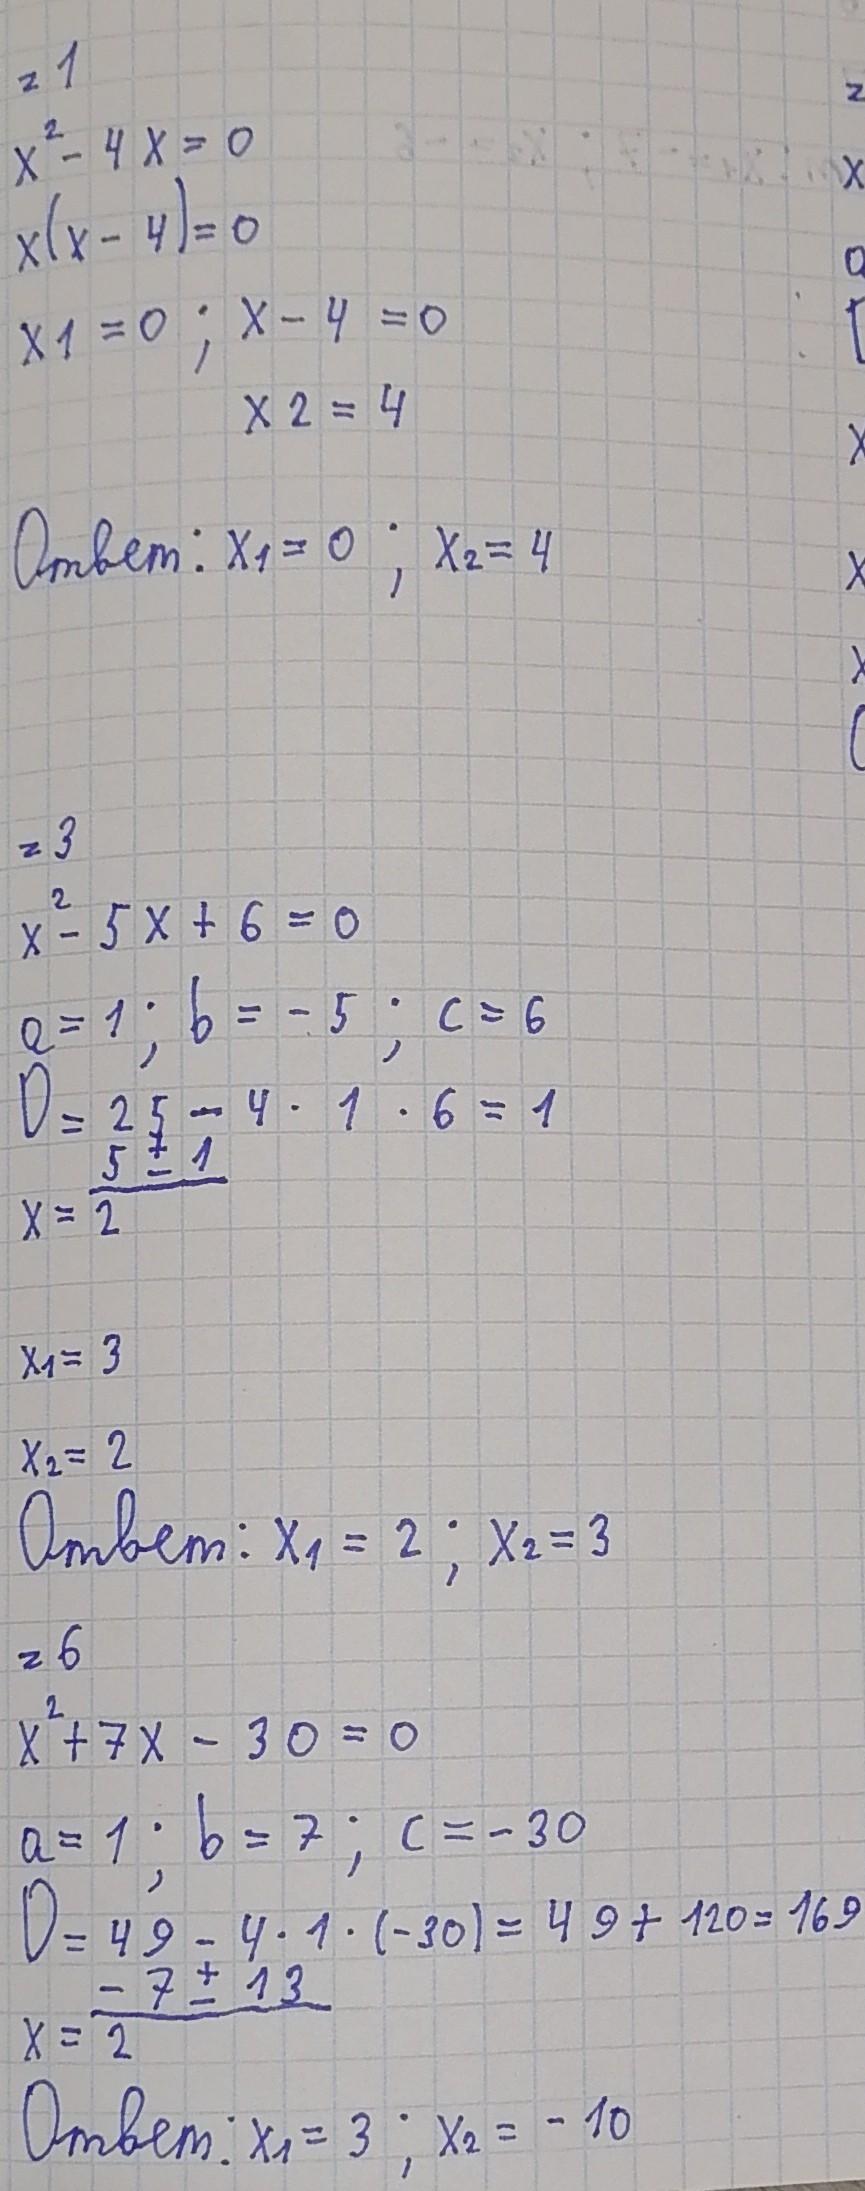 =1
x² - 4x = 0
x(x - 4) = 0
x1 = 0 ; x - 4 = 0
x2 = 4
Ответ: x₁ = 0 ; x₂ = 4
=3
x² - 5x + 6 = 0
a = 1 ; b = -5 ; c = 6
D = 25 - 4 · 1 · 6 = 1
5 ± 1
x = 2
x₁ = 3
x₂ = 2
Ответ: x₁ = 2 ; x₂ = 3
=6
x² + 7x - 30 = 0
a = 1 ; b = 7 ; c = -30
D = 49 - 4 · 1 · (-30) = 49 + 120 = 169
-7 ± 13
x = 2
Ответ: x₁ = 3 ; x₂ = -10